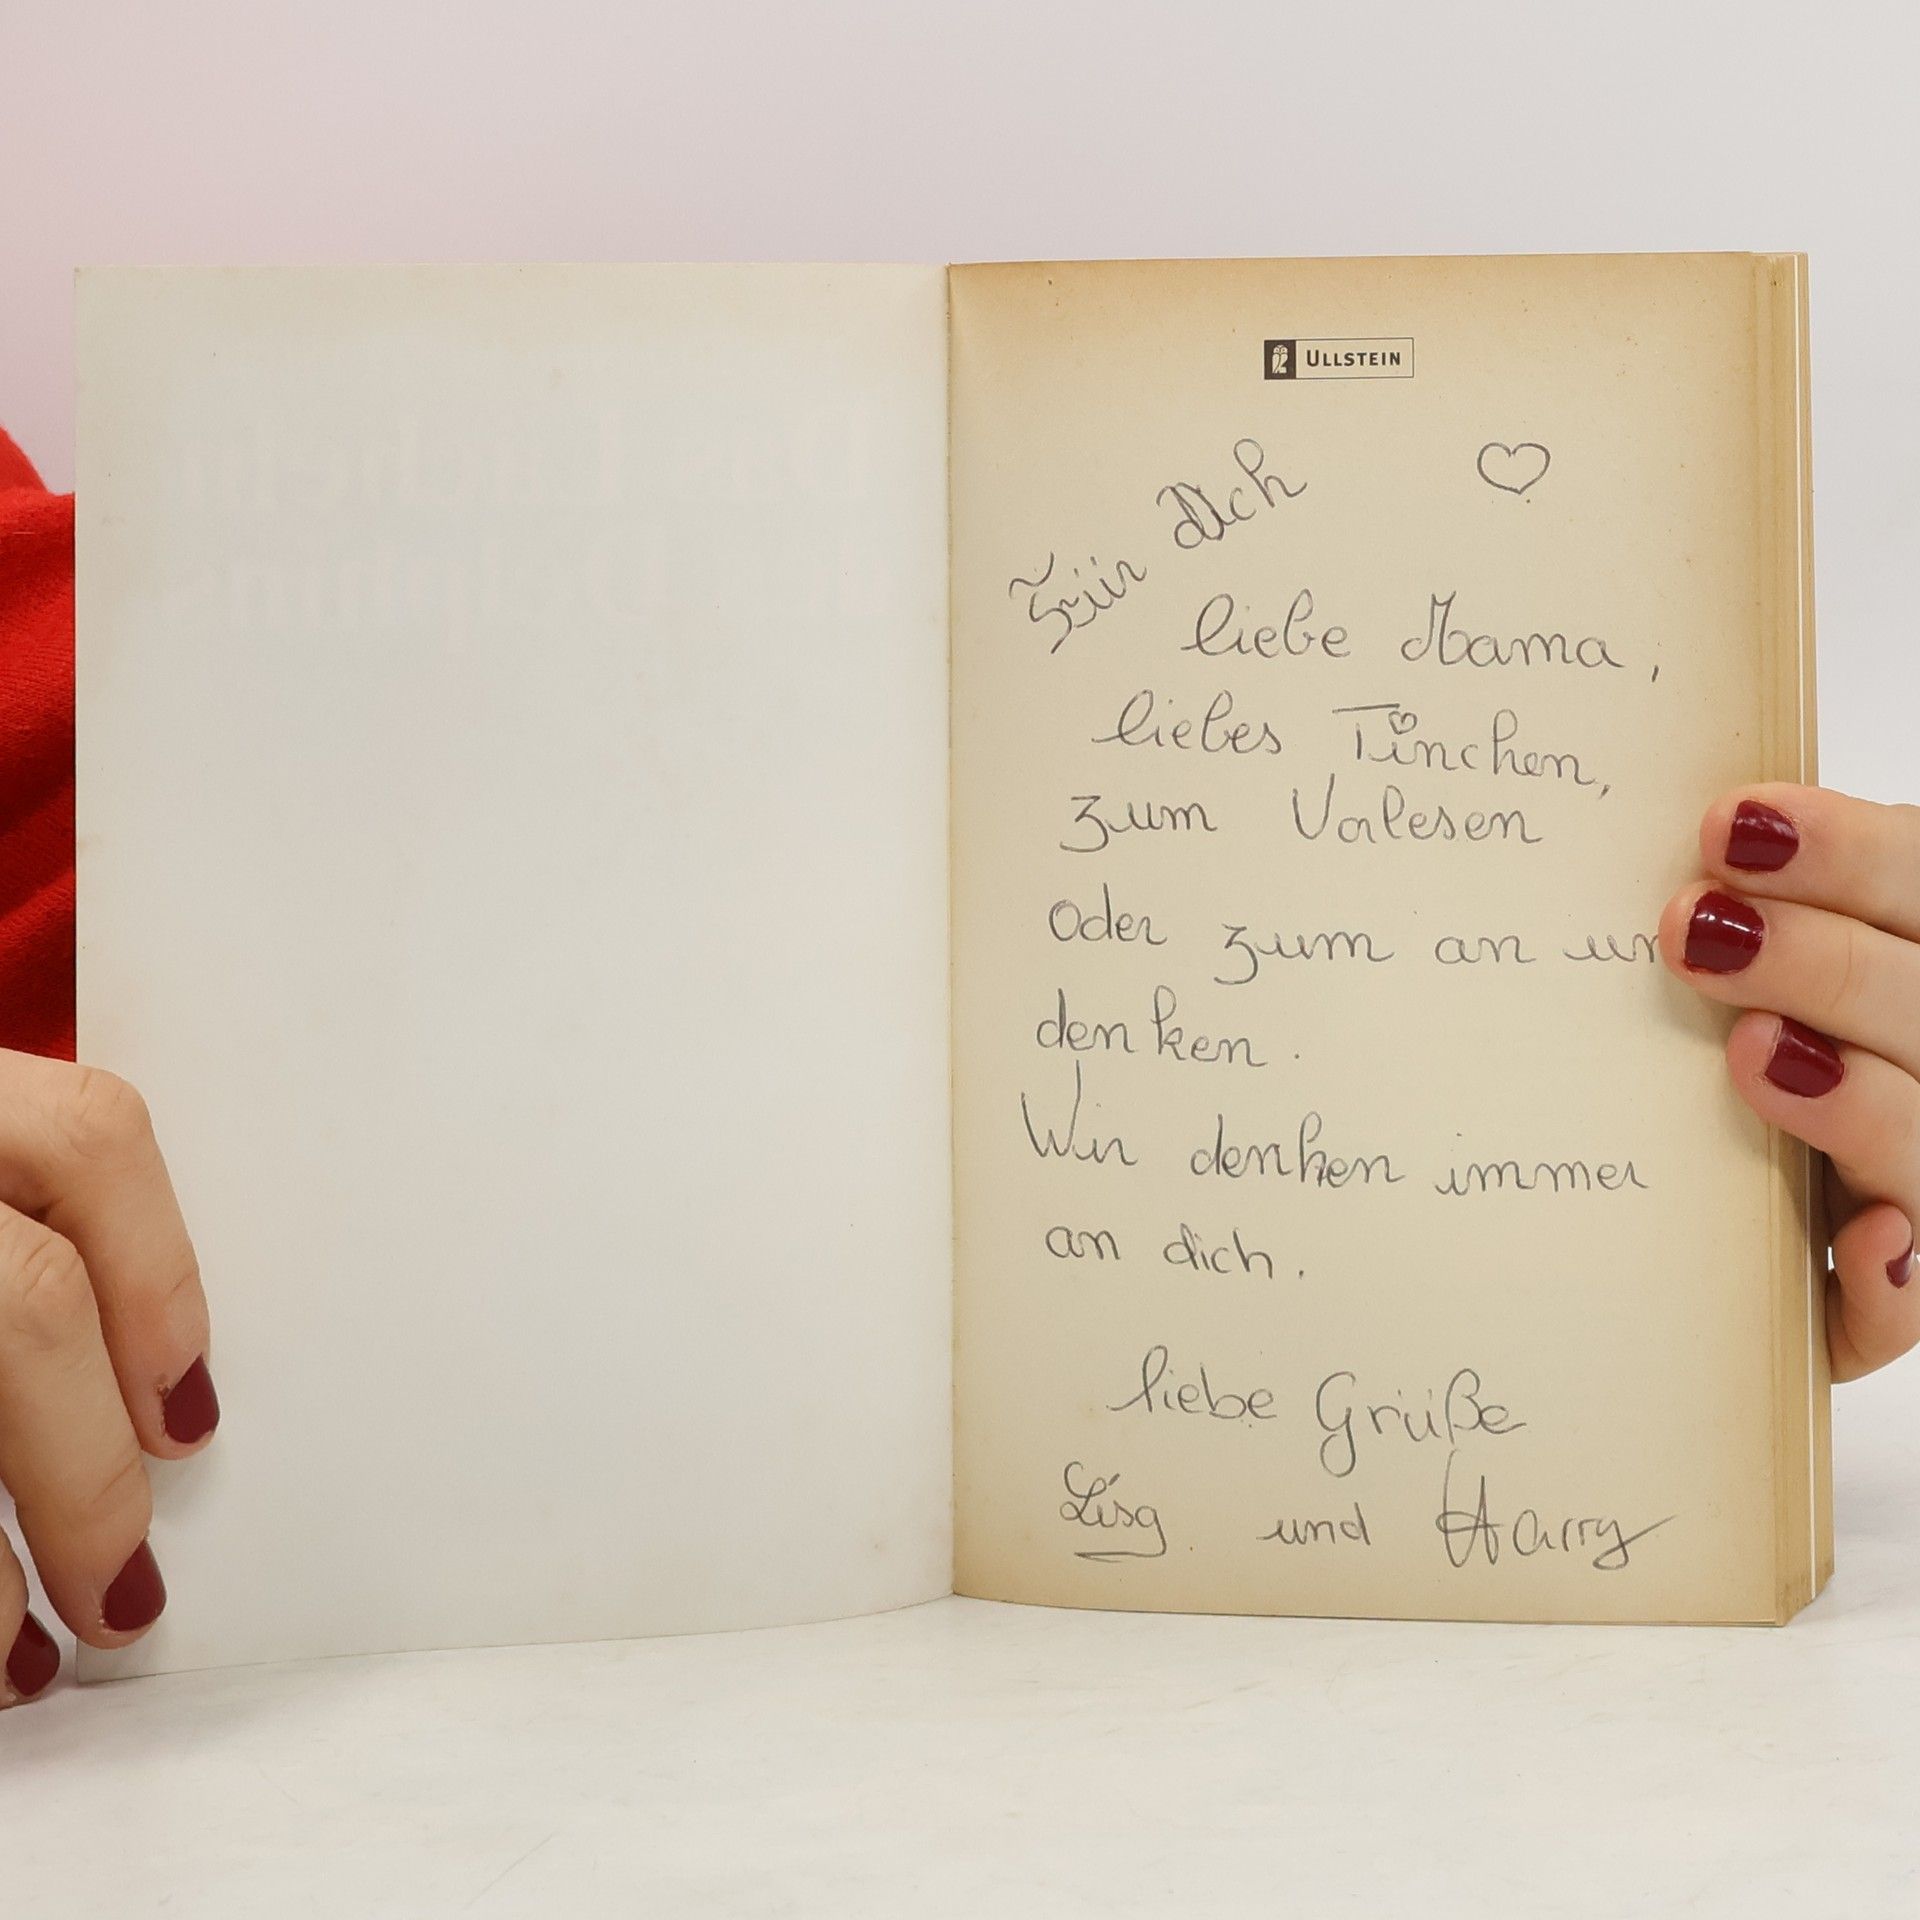 ULLSTEIN
Für Dich
liebe Mama,
liebes Tinchen,
zum Vorlesen
Oder zum an un
denken.
Wir denken immer
an dich.
liebe Grüße
Lisa und Harry